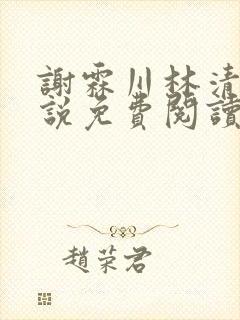 謝霖川林清
說免費閱讀
趙荣君